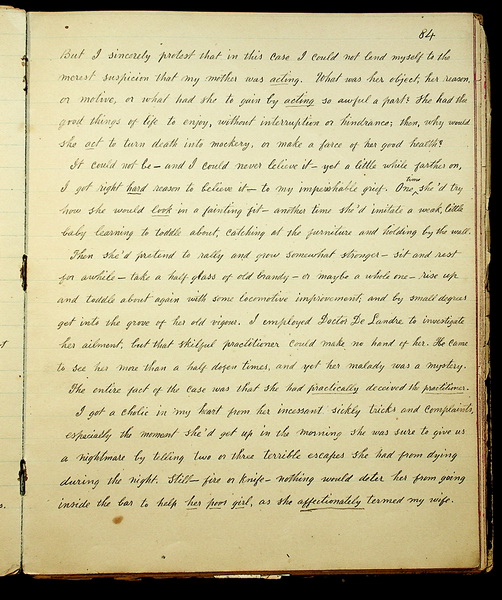 84
But I sincerely protest that in this case I could not lend myself to the
merest suspicion that my mother was acting. What was her object, her reason,
or motive, or what had she to gain by acting so awful a part? She had the
good things of life to enjoy, without interruption or hindrance; then, why would
she act to turn death into mockery, or make a farce of her good health?
It could not be – and I could never believe it – yet a little while farther on,
I got right hard reason to believe it – to my imperishable grief. One time she'd try
how she would look in a fainting fit – another time she'd imitate a weak, little
baby learning to toddle about, catching at the furniture and holding by the wall.
Then she'd pretend to rally and grow somewhat stronger – sit and rest
for awhile – take a half glass of old brandy – or maybe a whole one – rise up
and toddle about again with some locomotive improvement, and by small degrees
get into the grove of her old vigour. I employed Doctor De Landre to investigate
her ailment, but that skilful practitioner could make no hand of her. He came
to see her more than a half dozen times, and yet her malady was a mystery.
The entire fact of the case was that she had practically deceived the practitioner.
I got a cholic in my heart from her incessant, sickly tricks and complaints,
especially the moment she'd get up in the morning she was sure to give us
a nightmare by telling two or three terrible escapes she had from dying
during the night. Still – fire or knife – nothing would deter her from going
inside the bar to help her poor girl, as she affectionately termed my wife.